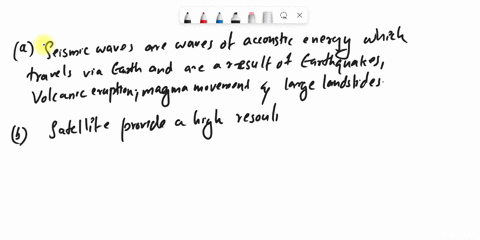 (a) Seismic waves are waves of accoustic energy which
travels via Earth and are a result of Earthquakes,
Volcanic eruption, magma movement & large landslides.
(b) Satellite provide a high resoul